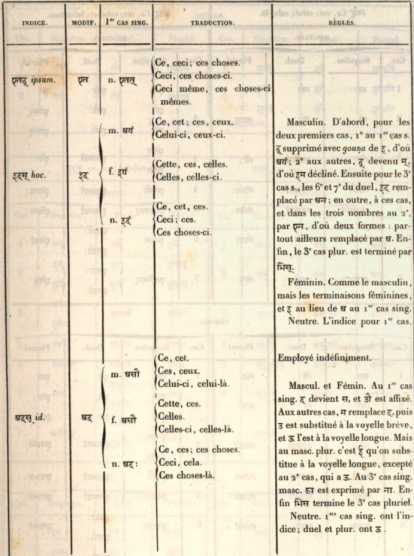 INDICE. MODIF. 1er CAS SING. TRADUCTION. RÈGLES.
Ce, ceci; ces choses.
एतद् ipsum. एत n. एतत् Ceci, ces choses-ci.
Ceci même, ces choses-ci
mêmes.
Ce, cet; ces, ceux.
m. अयं Celui-ci, ceux-ci.
Cette, ces, celles.
इदम् hoc. इद f. इयं Celles, celles-ci.
Ce, cet, ces.
n. इदं Ceci; ces.
Ces choses-ci.
Masculin. D'abord, pour les
deux premiers cas, 1° au 1er cas s.
द् supprimé avec gouna de इ, d'où
अयं; 2° aux autres, द् devenu म्,
d'où इम décliné. Ensuite pour le 3e
cas s., les 6e et 7e du duel, इद rem-
placé par अन; en outre, à ces cas,
et dans les trois nombres au 2e,
par एन, d'où deux formes: par-
tout ailleurs remplacé par अ. En-
fin, le 3e cas plur. est terminé par
भिस्.
Féminin. Comme le masculin,
mais les terminaisons féminines,
et इ au lieu de अ au 1er cas sing.
Neutre. L'indice pour 1er cas.
Ce, cet.
m. असौ Ces, ceux.
Celui-ci, celui-là.
Cette, ces.
अदस् id. अद f. असौ Celles.
Celles-ci, celles-là.
Ce, ces; ces choses.
n. अदः Ceci, cela.
Ces choses-là.
Employé indéfiniment.
Mascul. et Fémin. Au 1er cas
sing. द devient स, et औ est affixé.
Aux autres cas, म remplace द, puis
उ est substitué à la voyelle brève,
et ऊ l'est à la voyelle longue. Mais
au masc. plur. c'est ई qu'on subs-
titue à la voyelle longue, excepté
au 2e cas, qui a ऊ. Au 3e cas sing.
masc. est exprimé par ना. En-
fin भिस termine le 3e cas pluriel.
Neutre. 1ers cas sing. ont l'in-
dice; duel et plur. ont ऊ.